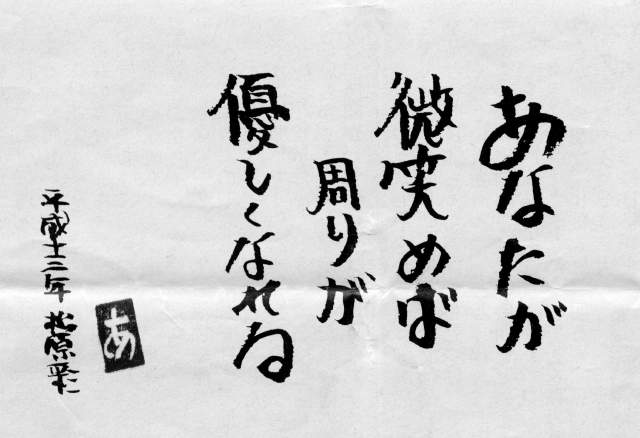 あなたが
微笑めば
周りが
優しくなれる
平成十三年 松原
あ